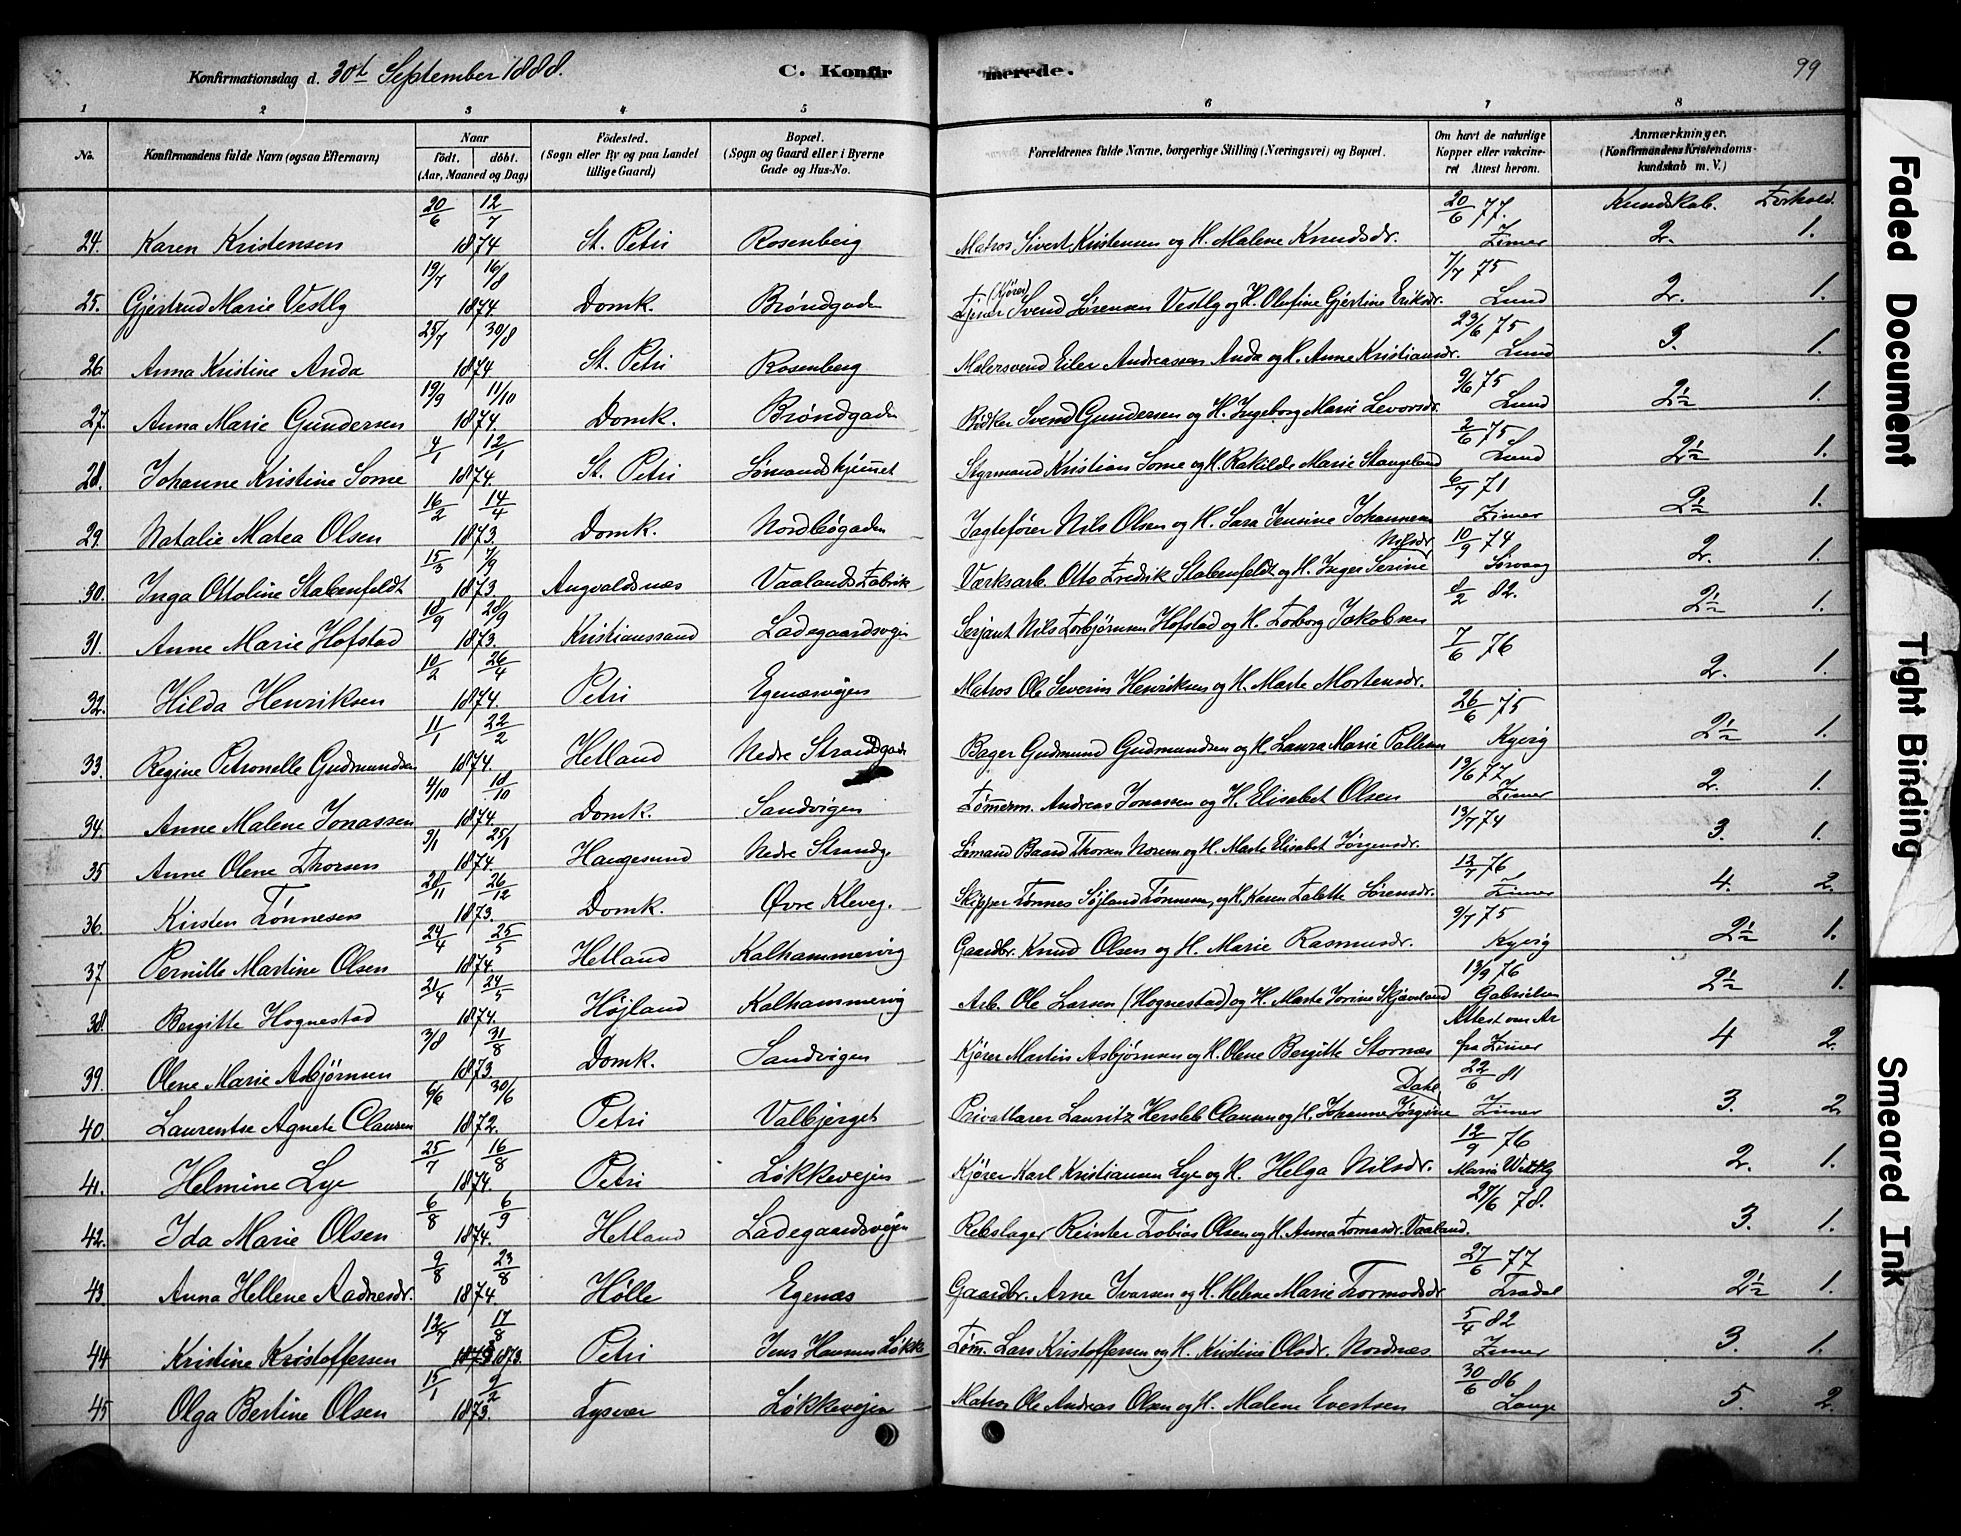 Konfirmationsdag d. 30te September 1888. C. Konfirmerede. 99
1 2 3 4 5 6 7 8
No. Konfirmandens fulde Navn (ogsaa Efternavn) Naar födt. döbt. (Aar, Maaned og Dag) Födested. (Sogn eller By og paa Landet tillige Gaard) Bopæl. (Sogn og Gaard eller i Byerne Gade og Hus-No. Forældrenes fulde Navne, borgerlige Stilling (Næringsvei) og Bopæl. Om havt de naturlige Kopper eller vakcineret Attest herom. Anmærkninger. (Konfirmandens Kristendomskundskab m. V.)
Kundskab. Forhold.
24. Karen Kristensen 20/6 12/7 1874 St. Petri Rosenberg Matros Sivert Kristensen og H. Malene Knudsdr. 20/6 77. Zimer 2. 1.
25. Gjertrud Marie Vestly 19/7 16/8 1874 Domk. Bröndgaden Tjener (Kjörer) Svend Sörensen Vestly og H. Olufine Gjertine Eriksdr. 7/7 75 Lund 2. 1.
26 Anna Kristine Anda 25/7 30/8 1874 St. Petri Rosenberg Malersvend Eiler Andreassen Anda og H. Anne Kristiansdr. 23/6 75 Lund 3. 1.
27. Anna Marie Gundersen 19/9 11/10 1874. Domk. Bröndgaden Bödker Svend Gundersen og H. Ingeborg Marie Levorsdr. 9/6 75 Lund 2½ 1.
28. Johanne Kristine Some 4/1 12/1 1874. St. Petri Sömandshjemmet Styrmand Kristian Some og H. Rakilde Marie Stangeland 2/6 75 Lund 2½ 1.
29. Natalie Matea Olsen 16/2 14/4 1873. Domk. Nordbögaden Jagtefører Nils Olsen og H. Sara Jensine Johannesen 6/7 71 Zimer 2½ 1.
30. Inga Ottoline Stabenfeldt 15/3 7/9 1873 Augvaldsnæs Vaalands Fabrik Værksarb. Otto Fredrik Stabenfeldt og H. Inger Serine Nilsdr. 10/9 74 2. 1.
31. Anne Marie Hofstad 18/9 28/9 1873. Kristianssand Ladegaardsvejen Serjant Nils Torbjörnsen Hofstad og H. Torborg Jakobsen 8/2 82. 2½ 1.
32. Hilda Henriksen 10/2 26/4 1874. Petri Egenæsvejen Matros Ole Severin Henriksen og H. Marte Mortensdr. 7/6 76 2. 1.
33. Regine Petronelle Gudmundsen 11/1 22/2 1874. Hetland Nedre Strandgade Bager Gudmund Gudmundsen og H. Laura Marie Pallesen 26/6 75 Kyvig 2½ 1.
34. Anne Malene Jonassen 4/10 18/10 1874. Domk. Sandvigen Tömerm. Andreas Jonassen og H. Elisabet Olsen 19/6 77 Zimer 2. 1.
35 Anne Olene Thorsen 9/1 25/1 1874 Haugesund Nedre Strandg. Sömand Baard Thorsen Norem og H. Marte Elisabet Jørgensdr. 13/7 74 3. 1.
36. Kirsten Tönnesen 28/11 26/12 1873. Domk. Øvre Kleveg. Skipper Tønnes Söyland Tønnesen og H. Karen Talette Sörensdr. 12/7 76 Zimer 4. 2.
37 Pernille Martine Olsen 24/4 25/5 1874. Hetland Kalhammervig Gaardbr. Knud Olsen og H. Marie Rasmusdr. 9/7 75 Kyvig 2½ 1.
38 Bergitte Hognestad 21/4 24/5 1874. Højland Kalhammervig Arb. Ole Larsen (Hognestad) og H. Marte Jorine Skjæveland 13/9 76 Gabrielsen 2½ 1.
39. Olene Marie Asbjörnsen 3/8 31/8 1873. Domk. Sandvigen Kjører Martin Asbjørnsen og H. Olene Bergitte Stornæs Attest om Ar fra Zimer 4 2.
40 Laurentse Agnete Clausen 6/6 30/6 1872. Petri Valbjerget Privatlærer Lauritz Hersleb Clausen og H. Johanne Jørgine Dahl 22/6 81 Zimer 3. 2
41. Helmine Lye 25/7 16/8 1874. Petri Løkkevejen Kjører Karl Kristiansen Lye og H. Helga Nilsdr. 12/9 76 Marie Westly 2. 1.
42. Ida Marie Olsen 6/8 6/9 1874. Hetland Ladegaardsvejen Rebslager Reinter Tobias Olsen og H. Anna Tornasdr. Vaaland. 27/6 78. 3. 1.
43. Anna Hellene Aadnesdr. 9/8 23/8 1874 Hölle Egenæs Gaardbr. Arne Ivarsen og H. Helene Marie Tormodsdr. 27/6 77 Tradal 2½ 1.
44 Kristine Kristoffersen 12/7 17/8 1873 1873. Petri Jens Hansens Løkke Töm. Lars Kristoffersen og H. Kristine Olsdr. Nordnæs. 5/4 82 Zimer 3. 1.
45 Olga Bertine Olsen 15/1 9/2 1873. Tysvær Løkkevejen Matros Ole Andreas Olsen og H. Malene Evertsen 30/6 86 Lange 5. 2.
Faded Document
Tight Binding
Smeared Ink